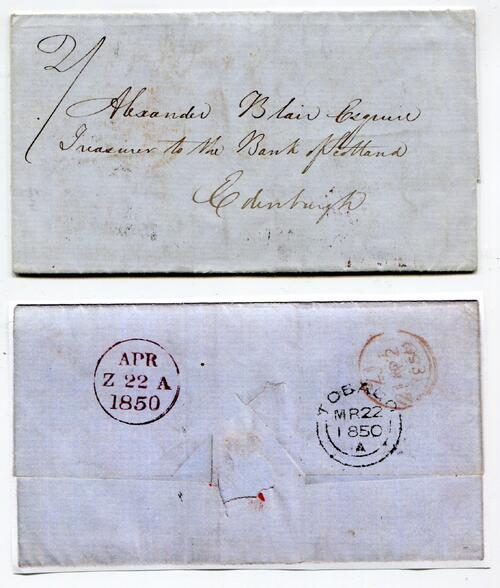 2/
Alexander Blair Esquire
Treasurer to the Bank of Scotland
Edinburgh
APR
Z 22 A
1850
TOBAGO
MR 22
1850
A